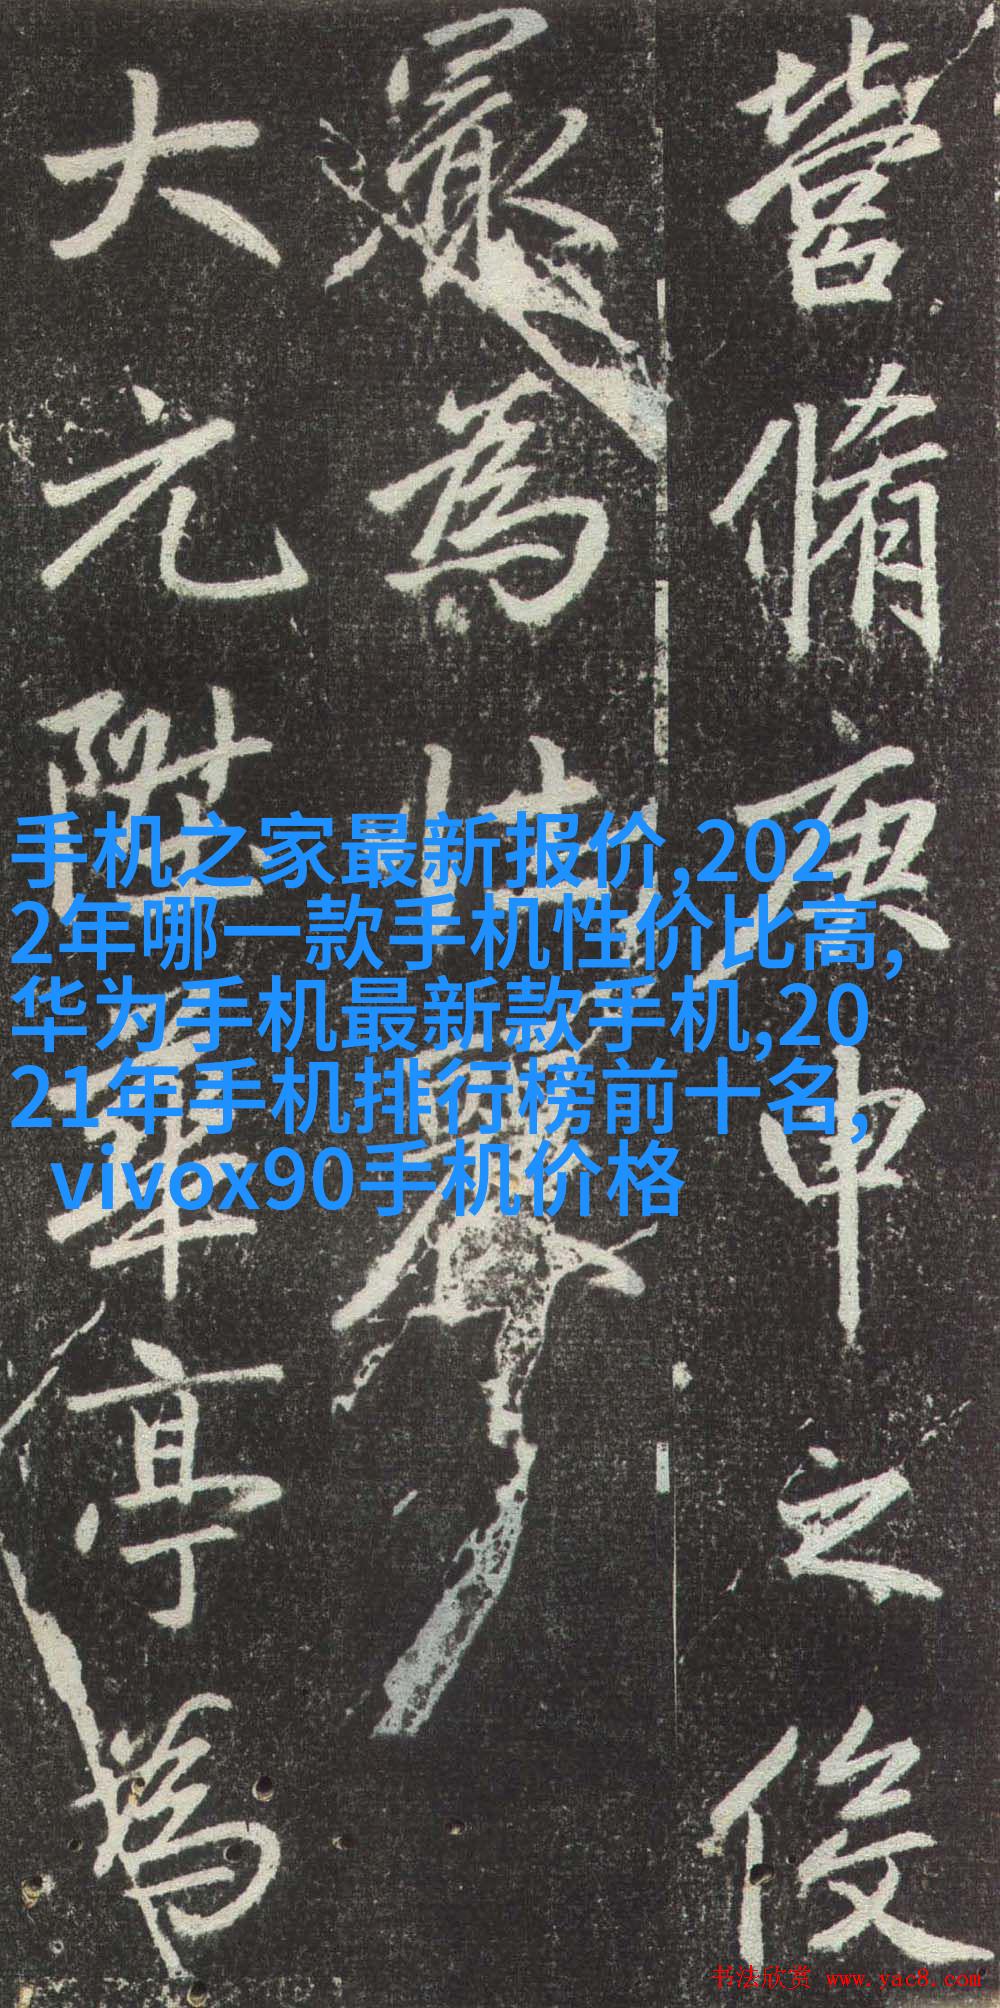 營脩庚申之後
最為壮麗
大元陞華亭為
手机之家最新报价,202
2年哪一款手机性价比高,
华为手机最新款手机,20
21年手机排行榜前十名,
vivox90手机价格
书法欣赏 www.yac8.com